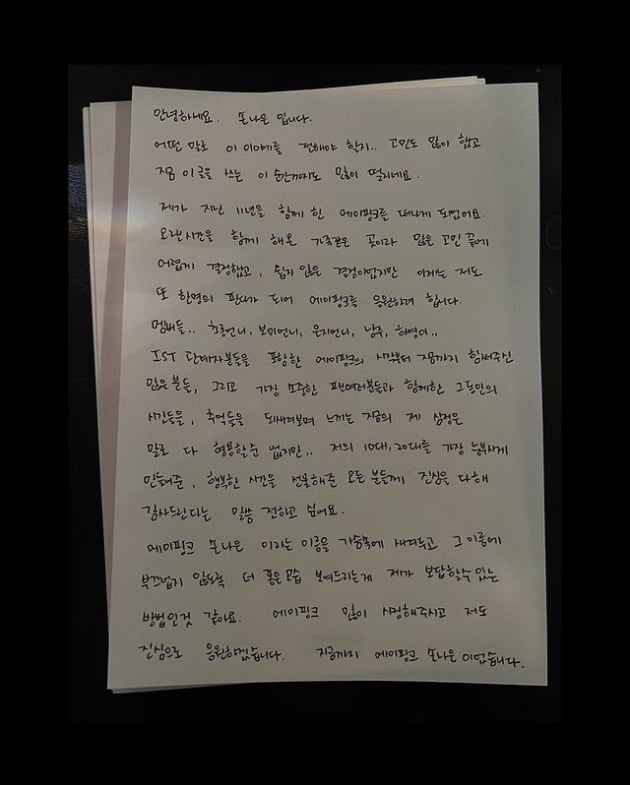 안녕하세요. 손나은 입니다.
어떤 말로 이 이야기를 전해야 할지.. 고민도 많이 했고
지금 이 글을 쓰는 이 순간까지도 많이 떨리네요.
제가 지난 11년을 함께 한 에이핑크를 떠나게 되었어요.
오랜시간을 함께 해온 가족같은 곳이라 많은 고민 끝에
어렵게 결정했고, 쉽지 않은 결정이었지만 이제는 저도
또 한명의 판다가 되어 에이핑크를 응원하려 합니다.
멤버들.. 초롱언니, 보미언니, 은지언니, 남주, 하영이..
IST 관계자분들을 포함한 에이핑크의 시작부터 지금까지 힘써주신
많은분들, 그리고 가장 소중한 팬여러분들과 함께한 그동안의
시간들을, 추억들을 되새겨보며 느끼는 지금의 제 심정은
말로 다 형용할순 없지만.. 저의 10대, 20대를 가장 눈부시게
만들어준, 행복한 시간을 선물해준 모든 분들께 진심을 다해
감사드린다는 말씀 전하고 싶어요.
에이핑크 손나은 이라는 이름을 가슴속에 새겨두고 그 이름에
부끄럽지 않도록 더 좋은 모습 보여드리는게 제가 보답할수 있는
방법인것 같아요. 에이핑크 많이 사랑해주시고 저도
진심으로 응원하겠습니다. 지금까지 에이핑크 손나은 이었습니다.